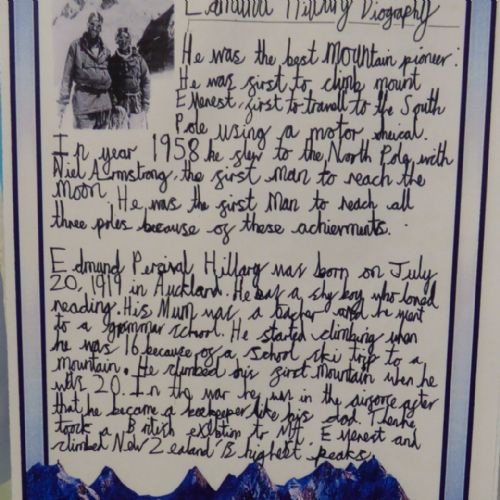 Edmund Hillary Biography
He was the best Mountain pioneer:
He was first to climb mount
Everest, first to travell to the South
Pole using a motor vheical.
In year 1958 he flew to the North Pole with
Niel Armstrong, the first man to reach the
Moon. He was the first Man to reach all
three poles because of these achierments.
Edmund Percival Hillary was born on July
20, 1919 in Auckland. He was a shy boy who loved
reading. His Mum was a teacher and he went
to a grammar school. He started climbing when
he was 16 because of a school ski trip to a
mountain. He climbed his first Mountain when he
was 20. In the war he was in the airforce after
that he became a beekeeper like his dad. Then he
took a British to Mt. Everest and
climbed New Zealand's highest peaks.